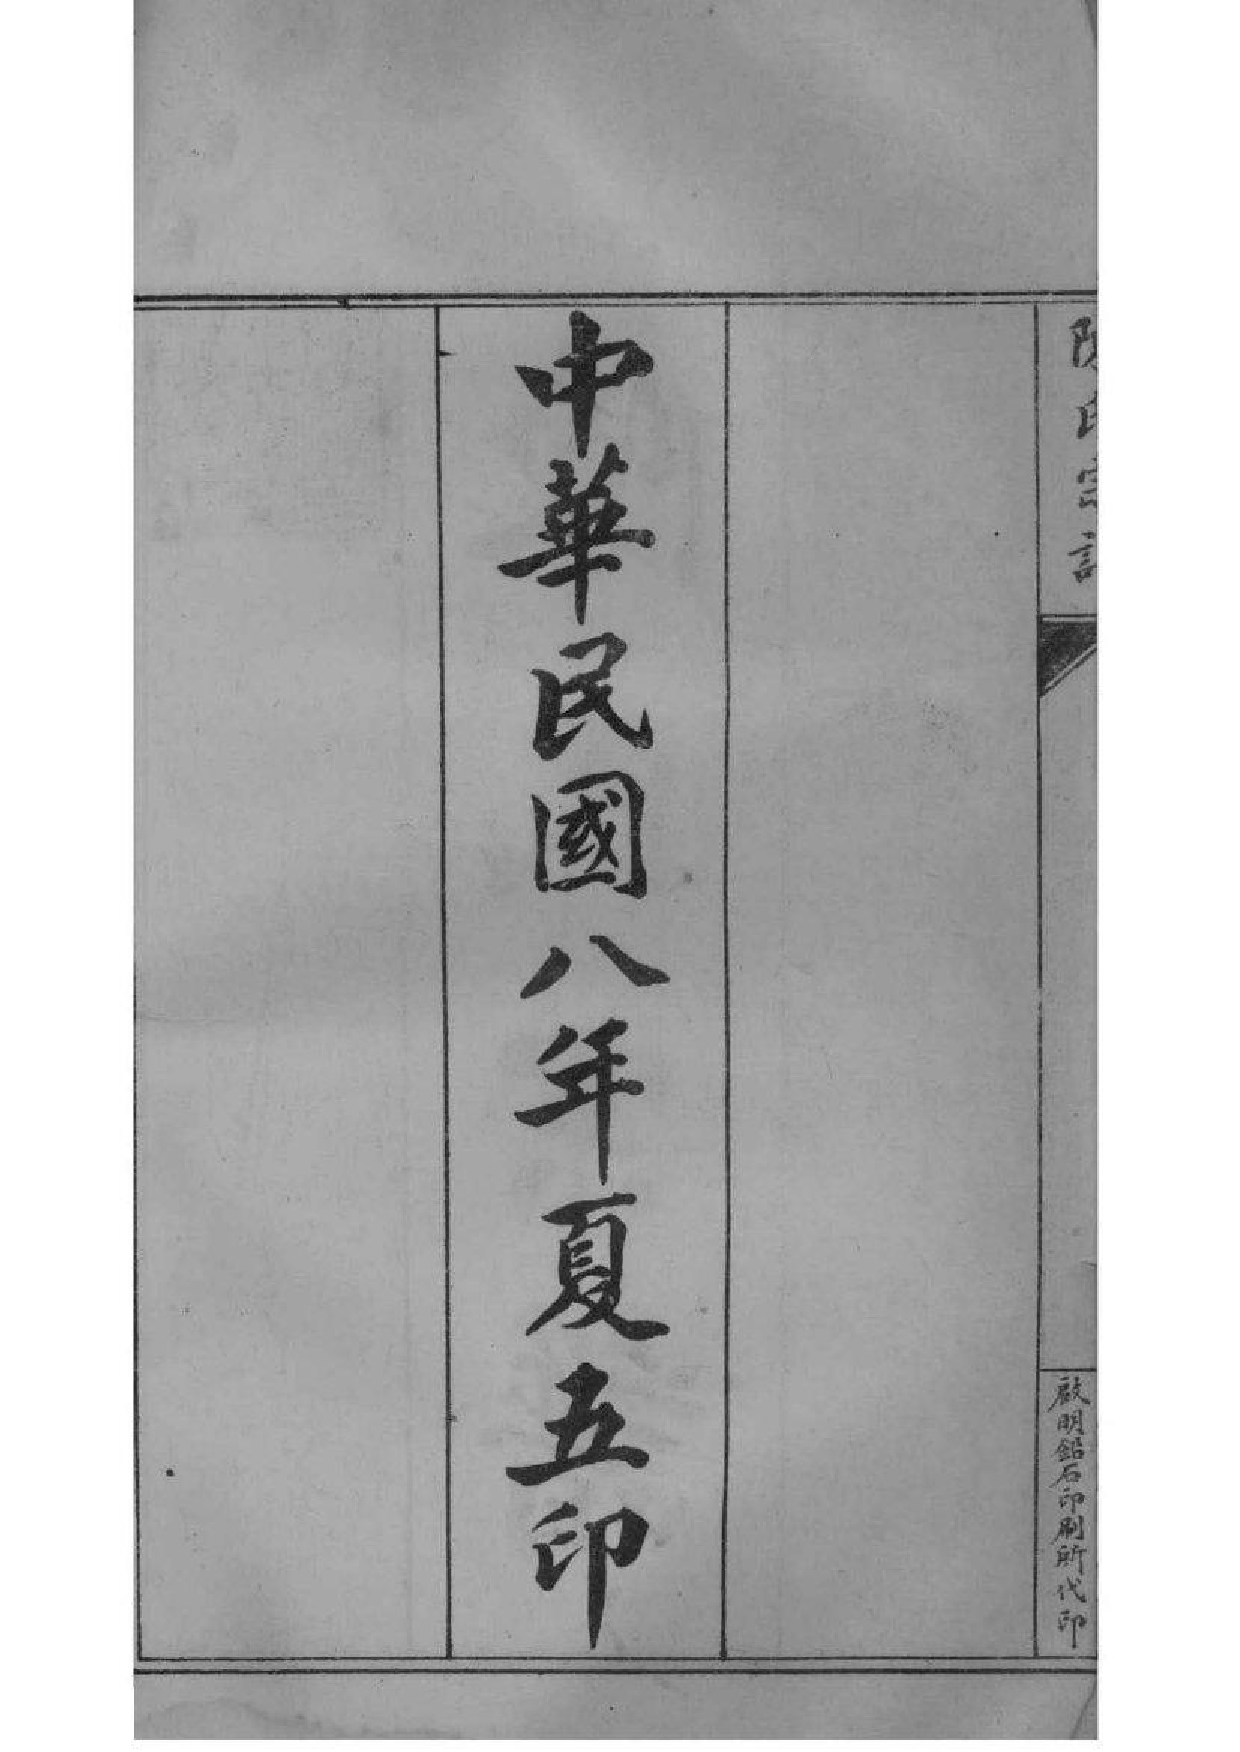 氏宗譜
啟明鉛石印刷所代印
中華民國八年夏五印